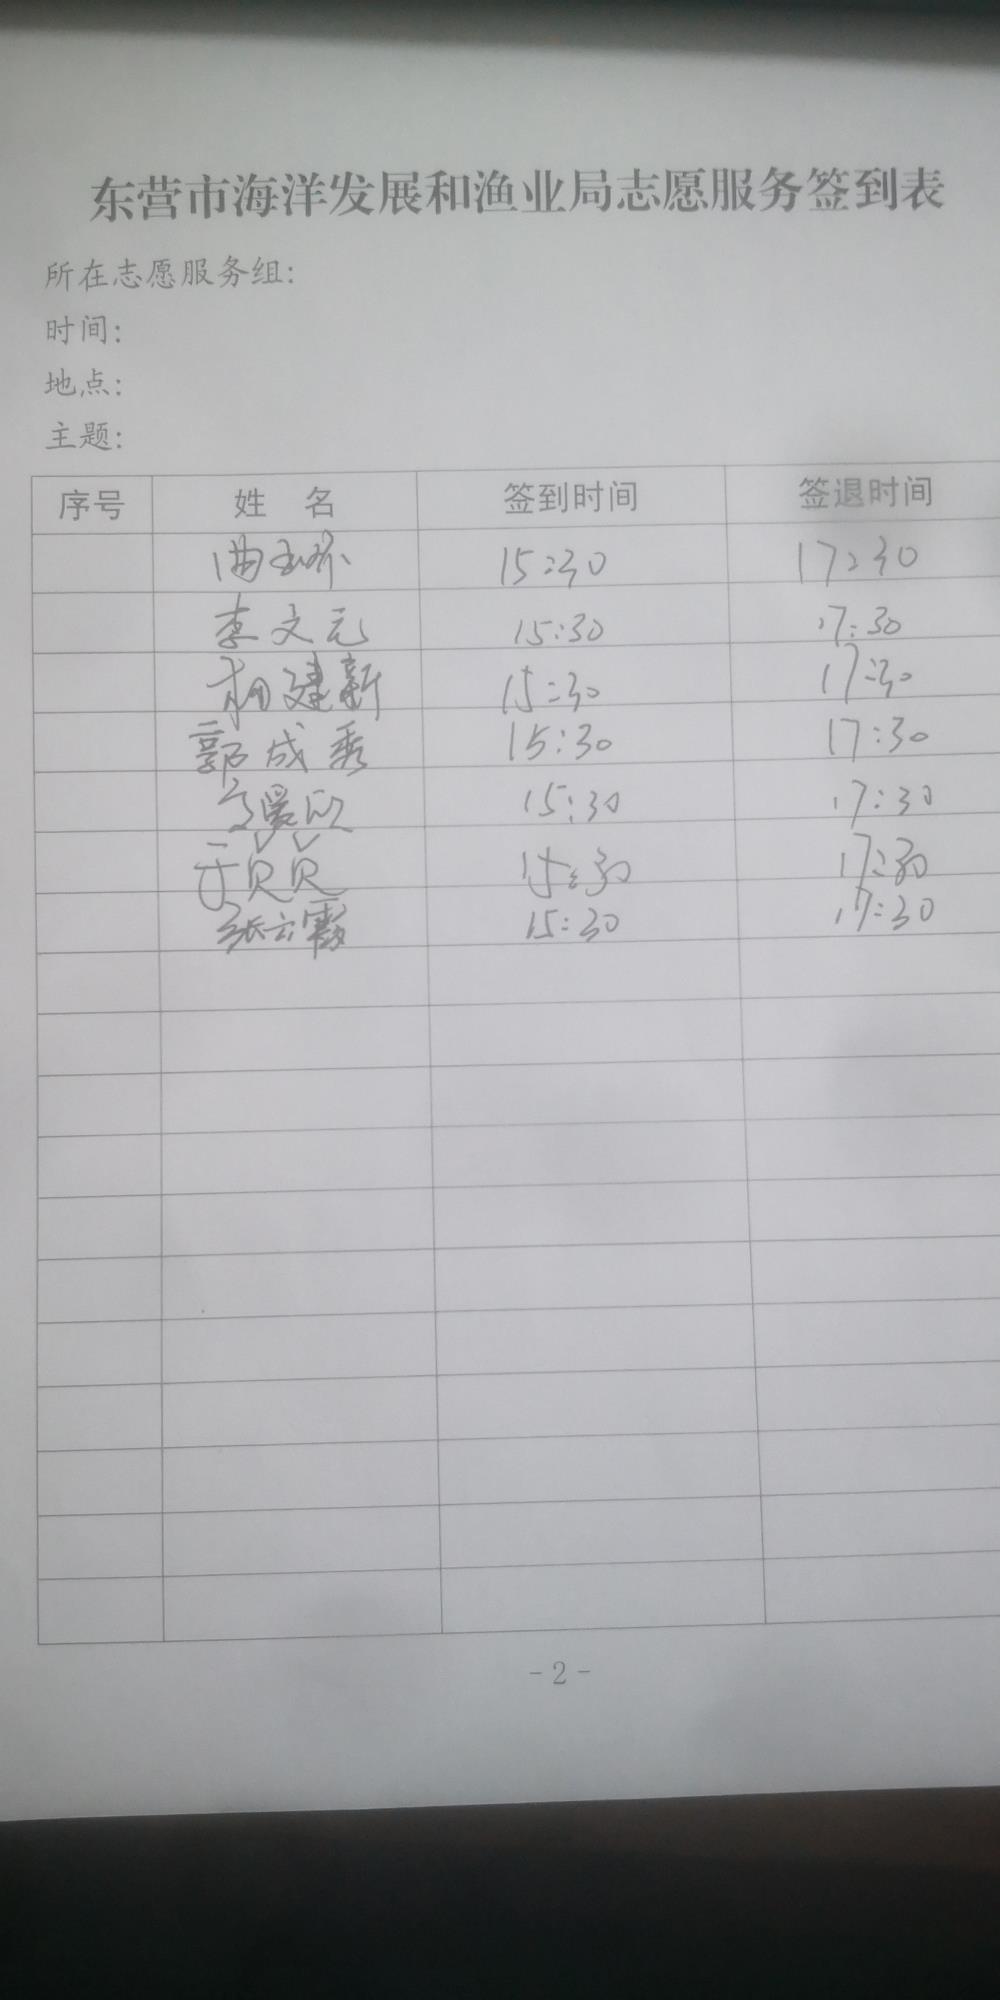 东营市海洋发展和渔业局志愿服务签到表
所在志愿服务组:
时间:
地点:
主题:
序号 姓 名 签到时间 签退时间
15:30 17:30
李文元 15:30 17:30
相建新 15:30 17:30
郭成秀 15:30 17:30
15:30 17:30
于贝贝 15:30 17:30
张云霞 15:30 17:30
- 2 -